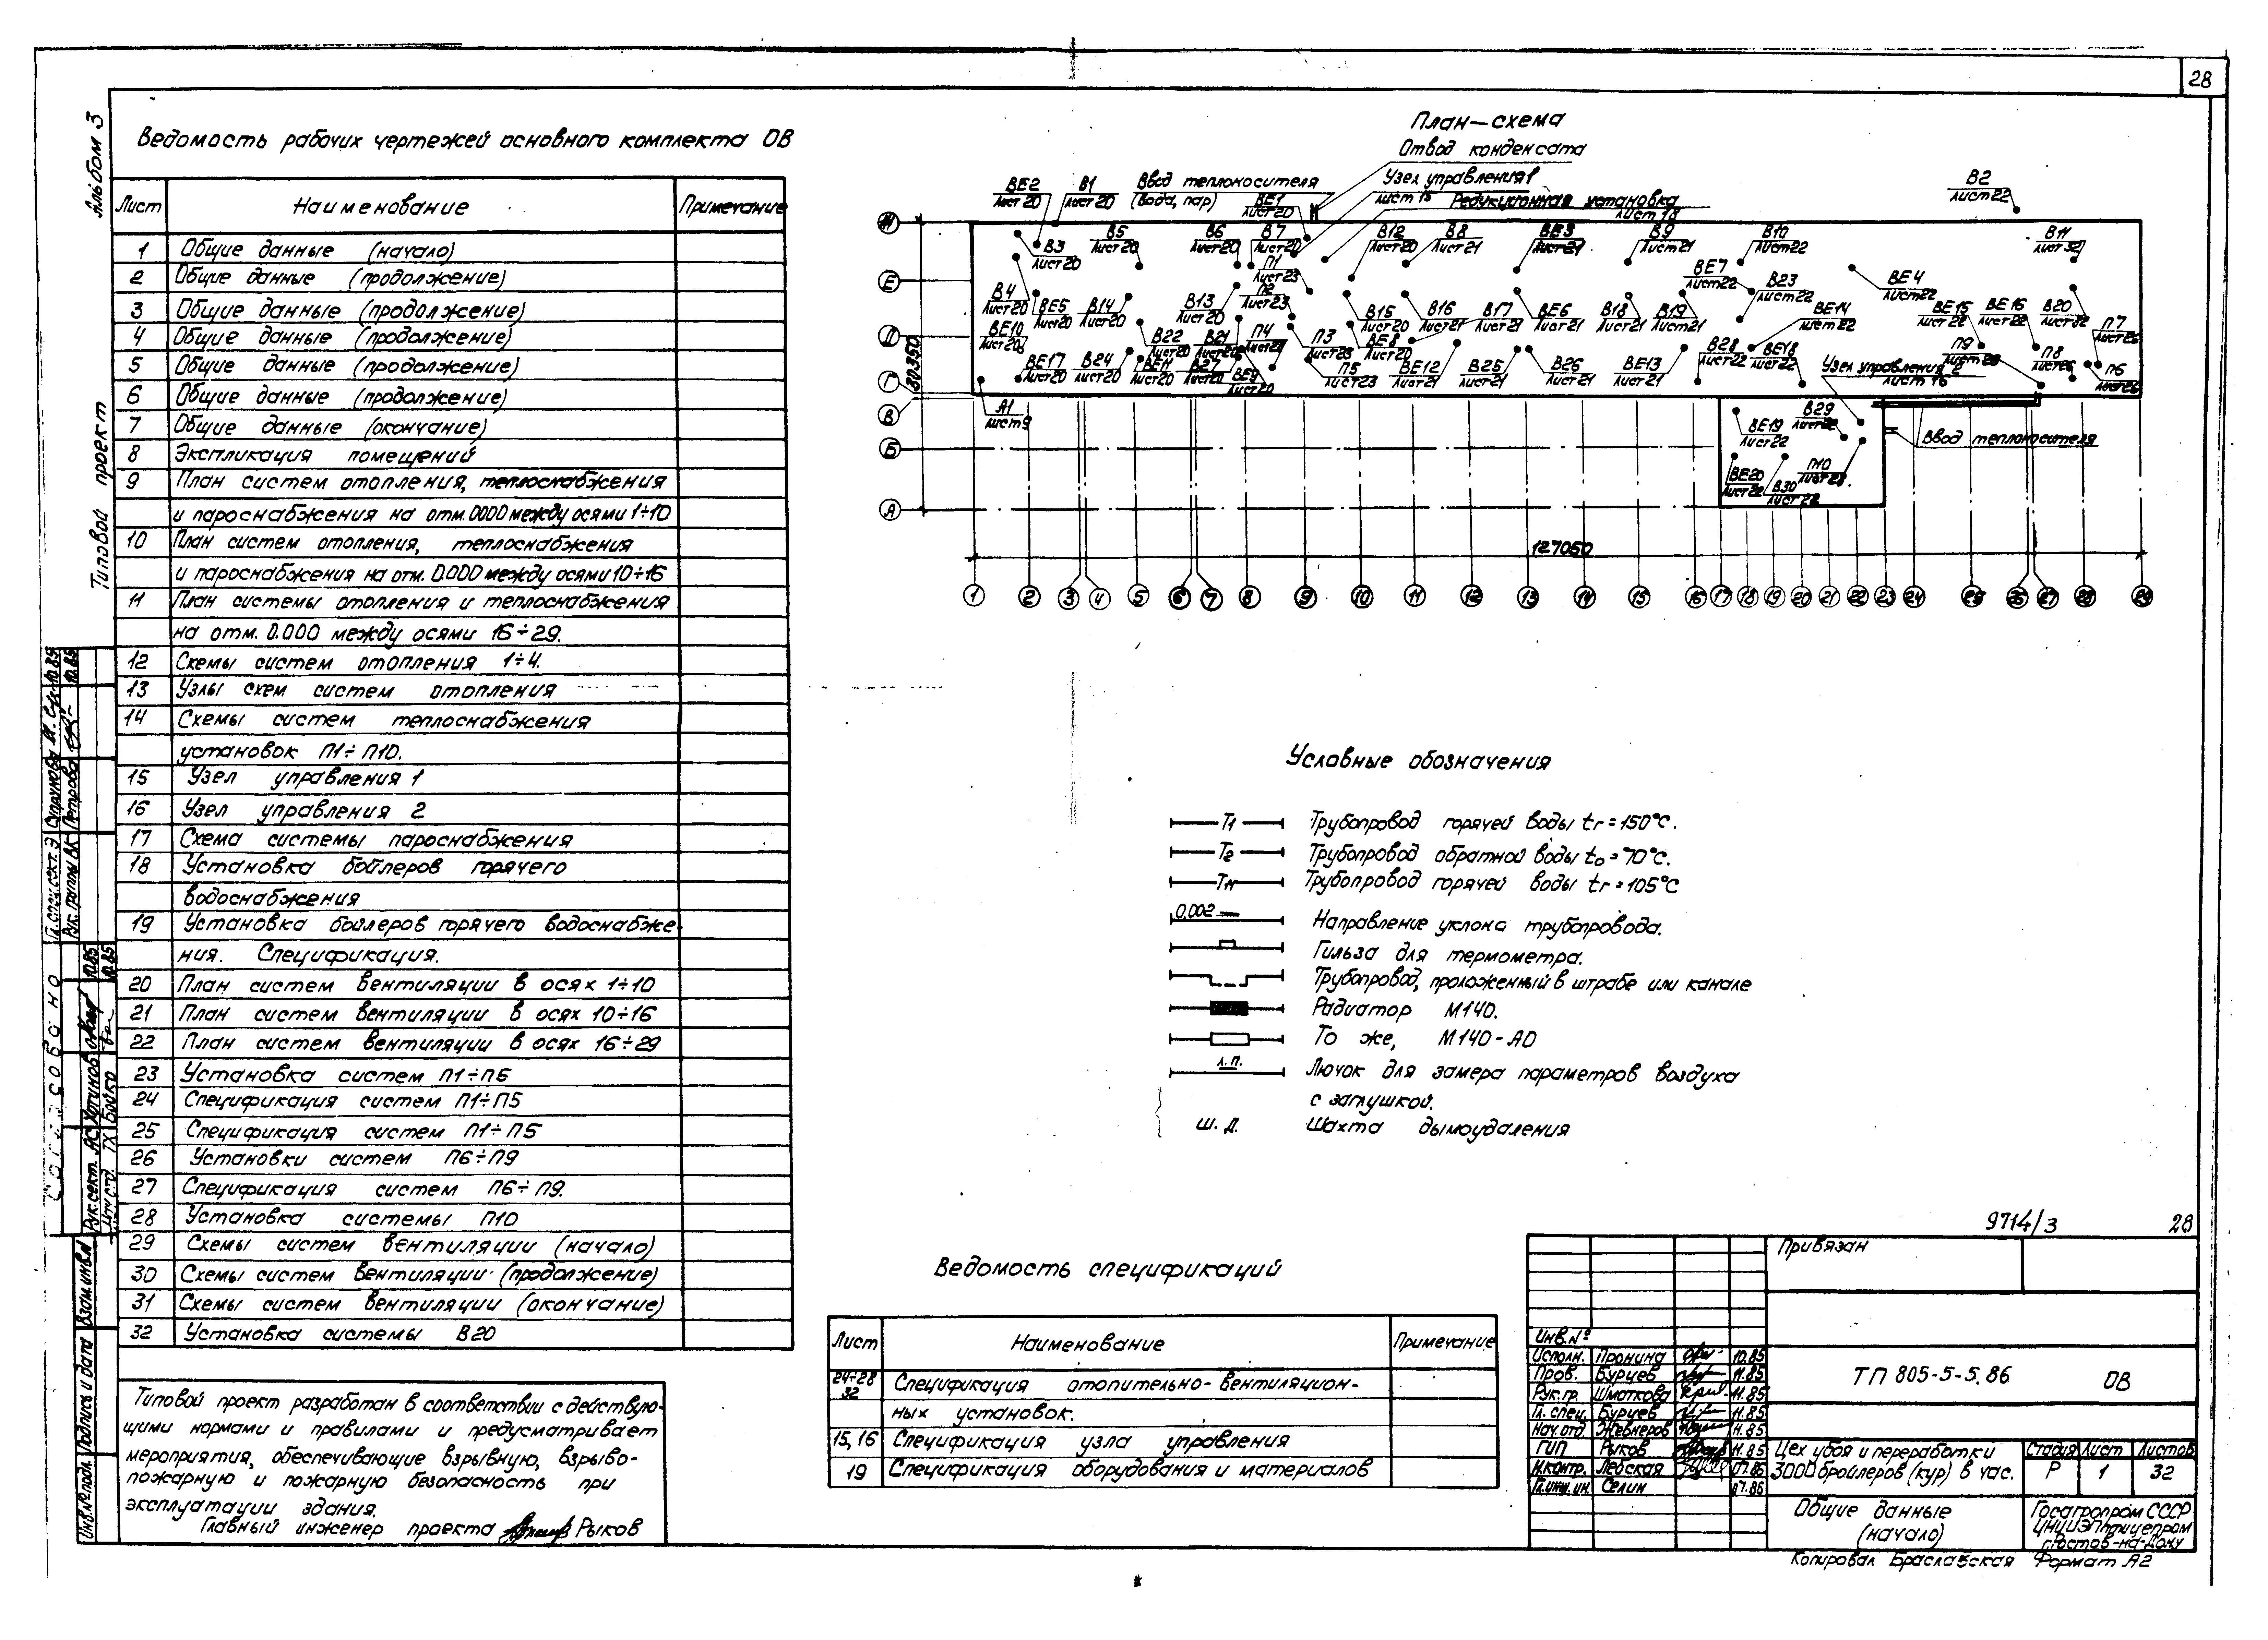 28
Альбом 3
Типовой проект
Ведомость рабочих чертежей основного комплекта ОВ
Лист Наименование Примечание
1 Общие данные (начало)
2 Общие данные (продолжение)
3 Общие данные (продолжение)
4 Общие данные (продолжение)
5 Общие данные (продолжение)
6 Общие данные (продолжение)
7 Общие данные (окончание)
8 Экспликация помещений
9 План систем отопления, теплоснабжения
и пароснабжения на отм. 0.000 между осями 1÷10
10 План систем отопления, теплоснабжения
и пароснабжения на отм. 0.000 между осями 10÷16
11 План системы отопления и теплоснабжения
на отм. 0.000 между осями 16÷29.
12 Схемы систем отопления 1÷4.
13 Узлы схем систем отопления
14 Схемы систем теплоснабжения
установок П1÷П10.
15 Узел управления 1
16 Узел управления 2
17 Схема системы пароснабжения
18 Установка бойлеров горячего
водоснабжения
19 Установка бойлеров горячего водоснабже-
ния. Спецификация.
20 План систем вентиляции в осях 1÷10
21 План систем вентиляции в осях 10÷16
22 План систем вентиляции в осях 16÷29
23 Установка систем П1÷П5
24 Спецификация систем П1÷П5
25 Спецификация систем П1÷П5
26 Установки систем П6÷П9
27 Спецификация систем П6÷П9.
28 Установка системы П10
29 Схемы систем вентиляции (начало)
30 Схемы систем вентиляции (продолжение)
31 Схемы систем вентиляции (окончание)
32 Установка системы В20
Типовой проект разработан в соответствии с действую-
щими нормами и правилами и предусматривает
мероприятия, обеспечивающие взрывную, взрыво-
пожарную и пожарную безопасность при
эксплуатации здания.
Главный инженер проекта Рыков
План-схема
Отвод конденсата
Ввод теплоносителя
(вода, пар)
Узел управления 1
Лист 15
Редукционная установка
Лист 18
ВЕ2 Лист 20
В1 Лист 20
ВЕ1 Лист 20
В2 Лист 22
В3 Лист 20
В5 Лист 20
В6 Лист 20
В7 Лист 20
В12 Лист 20
В8 Лист 21
ВЕ3 Лист 21
В9 Лист 21
В10 Лист 22
В11 Лист 32
П1 Лист 23
П2 Лист 23
ВЕ7 Лист 22
В23 Лист 22
ВЕ4 Лист 22
В4 Лист 20
ВЕ5 Лист 20
В14 Лист 20
В13 Лист 20
В15 Лист 20
В16 Лист 21
В17 Лист 21
ВЕ6 Лист 21
В18 Лист 21
В19 Лист 21
ВЕ14 Лист 22
ВЕ15 Лист 22
ВЕ16 Лист 22
В20 Лист 32
ВЕ10 Лист 20
В22 Лист 20
В21 Лист 20
П4 Лист 23
П3 Лист 23
ВЕ8 Лист 20
В28 Лист 22
ВЕ18 Лист 22
П9 Лист 26
П8 Лист 26
П7 Лист 26
ВЕ17 Лист 20
В24 Лист 20
ВЕ11 Лист 20
В27 Лист 20
ВЕ9 Лист 20
П5 Лист 23
ВЕ12 Лист 21
В25 Лист 21
В26 Лист 21
ВЕ13 Лист 21
Узел управления 2
Лист 16
П6 Лист 26
А1 Лист 9
ВЕ19 Лист 22
В29 Лист 22
Ввод теплоносителя
ВЕ20 Лист 22
В30 Лист 22
П10 Лист 28
И
Е
Д
Г
В
Б
А
30350
127050
1 2 3 4 5 6 7 8 9 10 11 12 13 14 15 16 17 18 19 20 21 22 23 24 25 26 27 28 29
Условные обозначения
Т1 Трубопровод горячей воды tг=150°С.
Т2 Трубопровод обратной воды tо=70°С.
Т11 Трубопровод горячей воды tг=105°С
0,002 Направление уклона трубопровода.
Гильза для термометра.
Трубопровод, проложенный в штрабе или канале
Радиатор М140.
То же, М140-АО
л.п. Лючок для замера параметров воздуха
с заглушкой.
ш.д. Шахта дымоудаления
Ведомость спецификаций
Лист Наименование Примечание
24÷28
32 Спецификация отопительно-вентиляцион-
ных установок.
15, 16 Спецификация узла управления
19 Спецификация оборудования и материалов
9714/3 28
Привязан
Инв.№
Исполн. Пронина 10.85
Пров. Бурцев 11.85
Рук.гр. Шматкова 11.85
Гл. спец. Бурцев 11.85
Нач.отд. Жевнеров 11.85
ГИП Рыков 11.85
Н.контр. Лебская 07.86
Гл.инж.ин. Селин 07.86
ТП 805-5-5.86 ОВ
Цех убоя и переработки
3000 бройлеров (кур) в час.
Стадия Лист Листов
Р 1 32
Общие данные
(начало)
Госагропром СССР
ЦНИИЭПптицепром
г.Ростов-на-Дону
Копировал Браславская Формат А2
Гл. спец. сект. Э Супрунова 10.85
Рук. группы ВК Петрова 10.85
Согласовано
Рук. сект. АС Хотинов 10.85
ТХ Бойко 10.85
Взам. инв.№
Подпись и дата
Инв.№ подл.